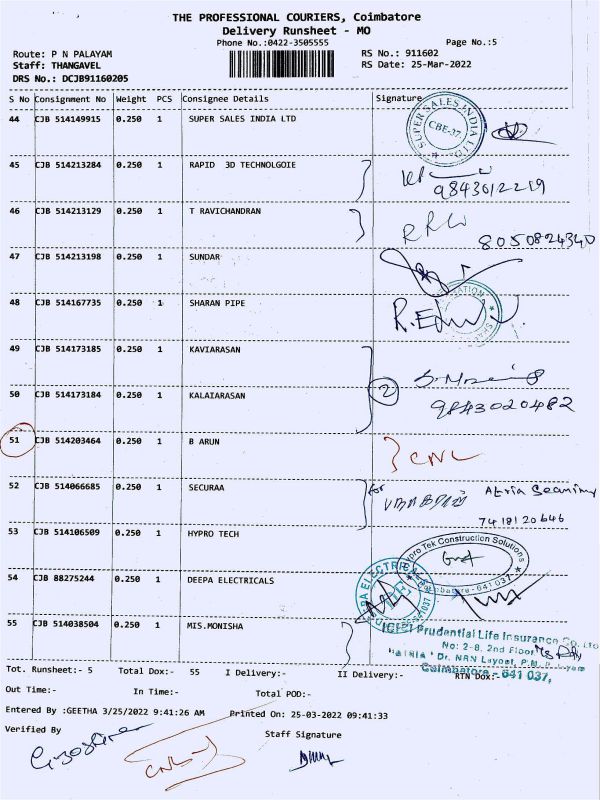 THE PROFESSIONAL COURIERS, Coimbatore
Delivery Runsheet - MO
Phone No.:0422-3505555
Page No.:5
Route: P N PALAYAM
RS No.: 911602
Staff: THANGAVEL
RS Date: 25-Mar-2022
DRS No.: DCJB91160205
S No Consignment No Weight PCS Consignee Details Signature
44 CJB 514149915 0.250 1 SUPER SALES INDIA LTD
SUPER SALES INDIA LTD
CBE-37.
45 CJB 514213284 0.250 1 RAPID 3D TECHNOLGOIE
9843012219
46 CJB 514213129 0.250 1 T RAVICHANDRAN
8050824340
47 CJB 514213198 0.250 1 SUNDAR
48 CJB 514167735 0.250 1 SHARAN PIPE
49 CJB 514173185 0.250 1 KAVIARASAN
50 CJB 514173184 0.250 1 KALAIARASAN
2
9843020482
51 CJB 514203464 0.250 1 B ARUN
CNL
52 CJB 514066685 0.250 1 SECURAA
for
7418120646
53 CJB 514106509 0.250 1 HYPRO TECH
Hypro Tek Construction Solutions
Coimbatore - 641 037
54 CJB 88275244 0.250 1 DEEPA ELECTRICALS
55 CJB 514038504 0.250 1 MIS.MONISHA
ICICI Prudential Life Insurance Co. Ltd
No: 2-8, 2nd Floor
Dr. NRN Layout, P.N. P
Coimbatore - 641 037,
Tot. Runsheet:- 5 Total Dox:- 55 I Delivery:- II Delivery:- RTN Dox:-
Out Time:- In Time:- Total POD:-
Entered By :GEETHA 3/25/2022 9:41:26 AM Printed On: 25-03-2022 09:41:33
Verified By
Staff Signature